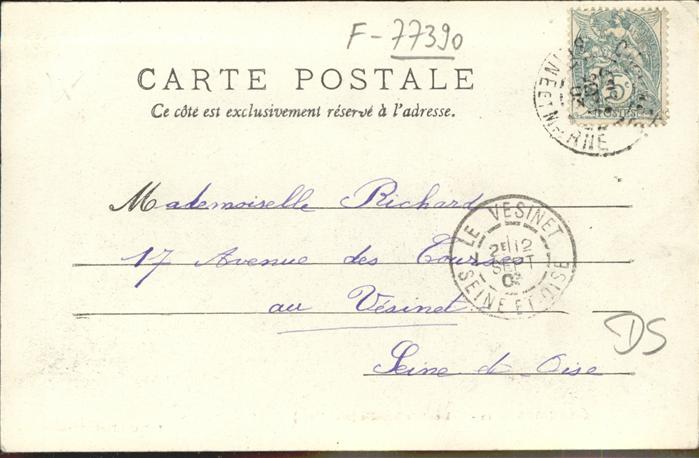 F-77390
CARTE POSTALE
Ce côté est exclusivement réservé à l'adresse.
5c
POSTES
SEINE ET MARNE
Mademoiselle Richard
17 Avenue des Courses
au Vésinet
Seine et Oise
LE VESINET
2E 12
SEPT
03
SEINE ET OISE
DS